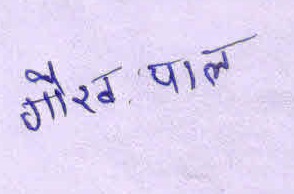 गौरव पाल